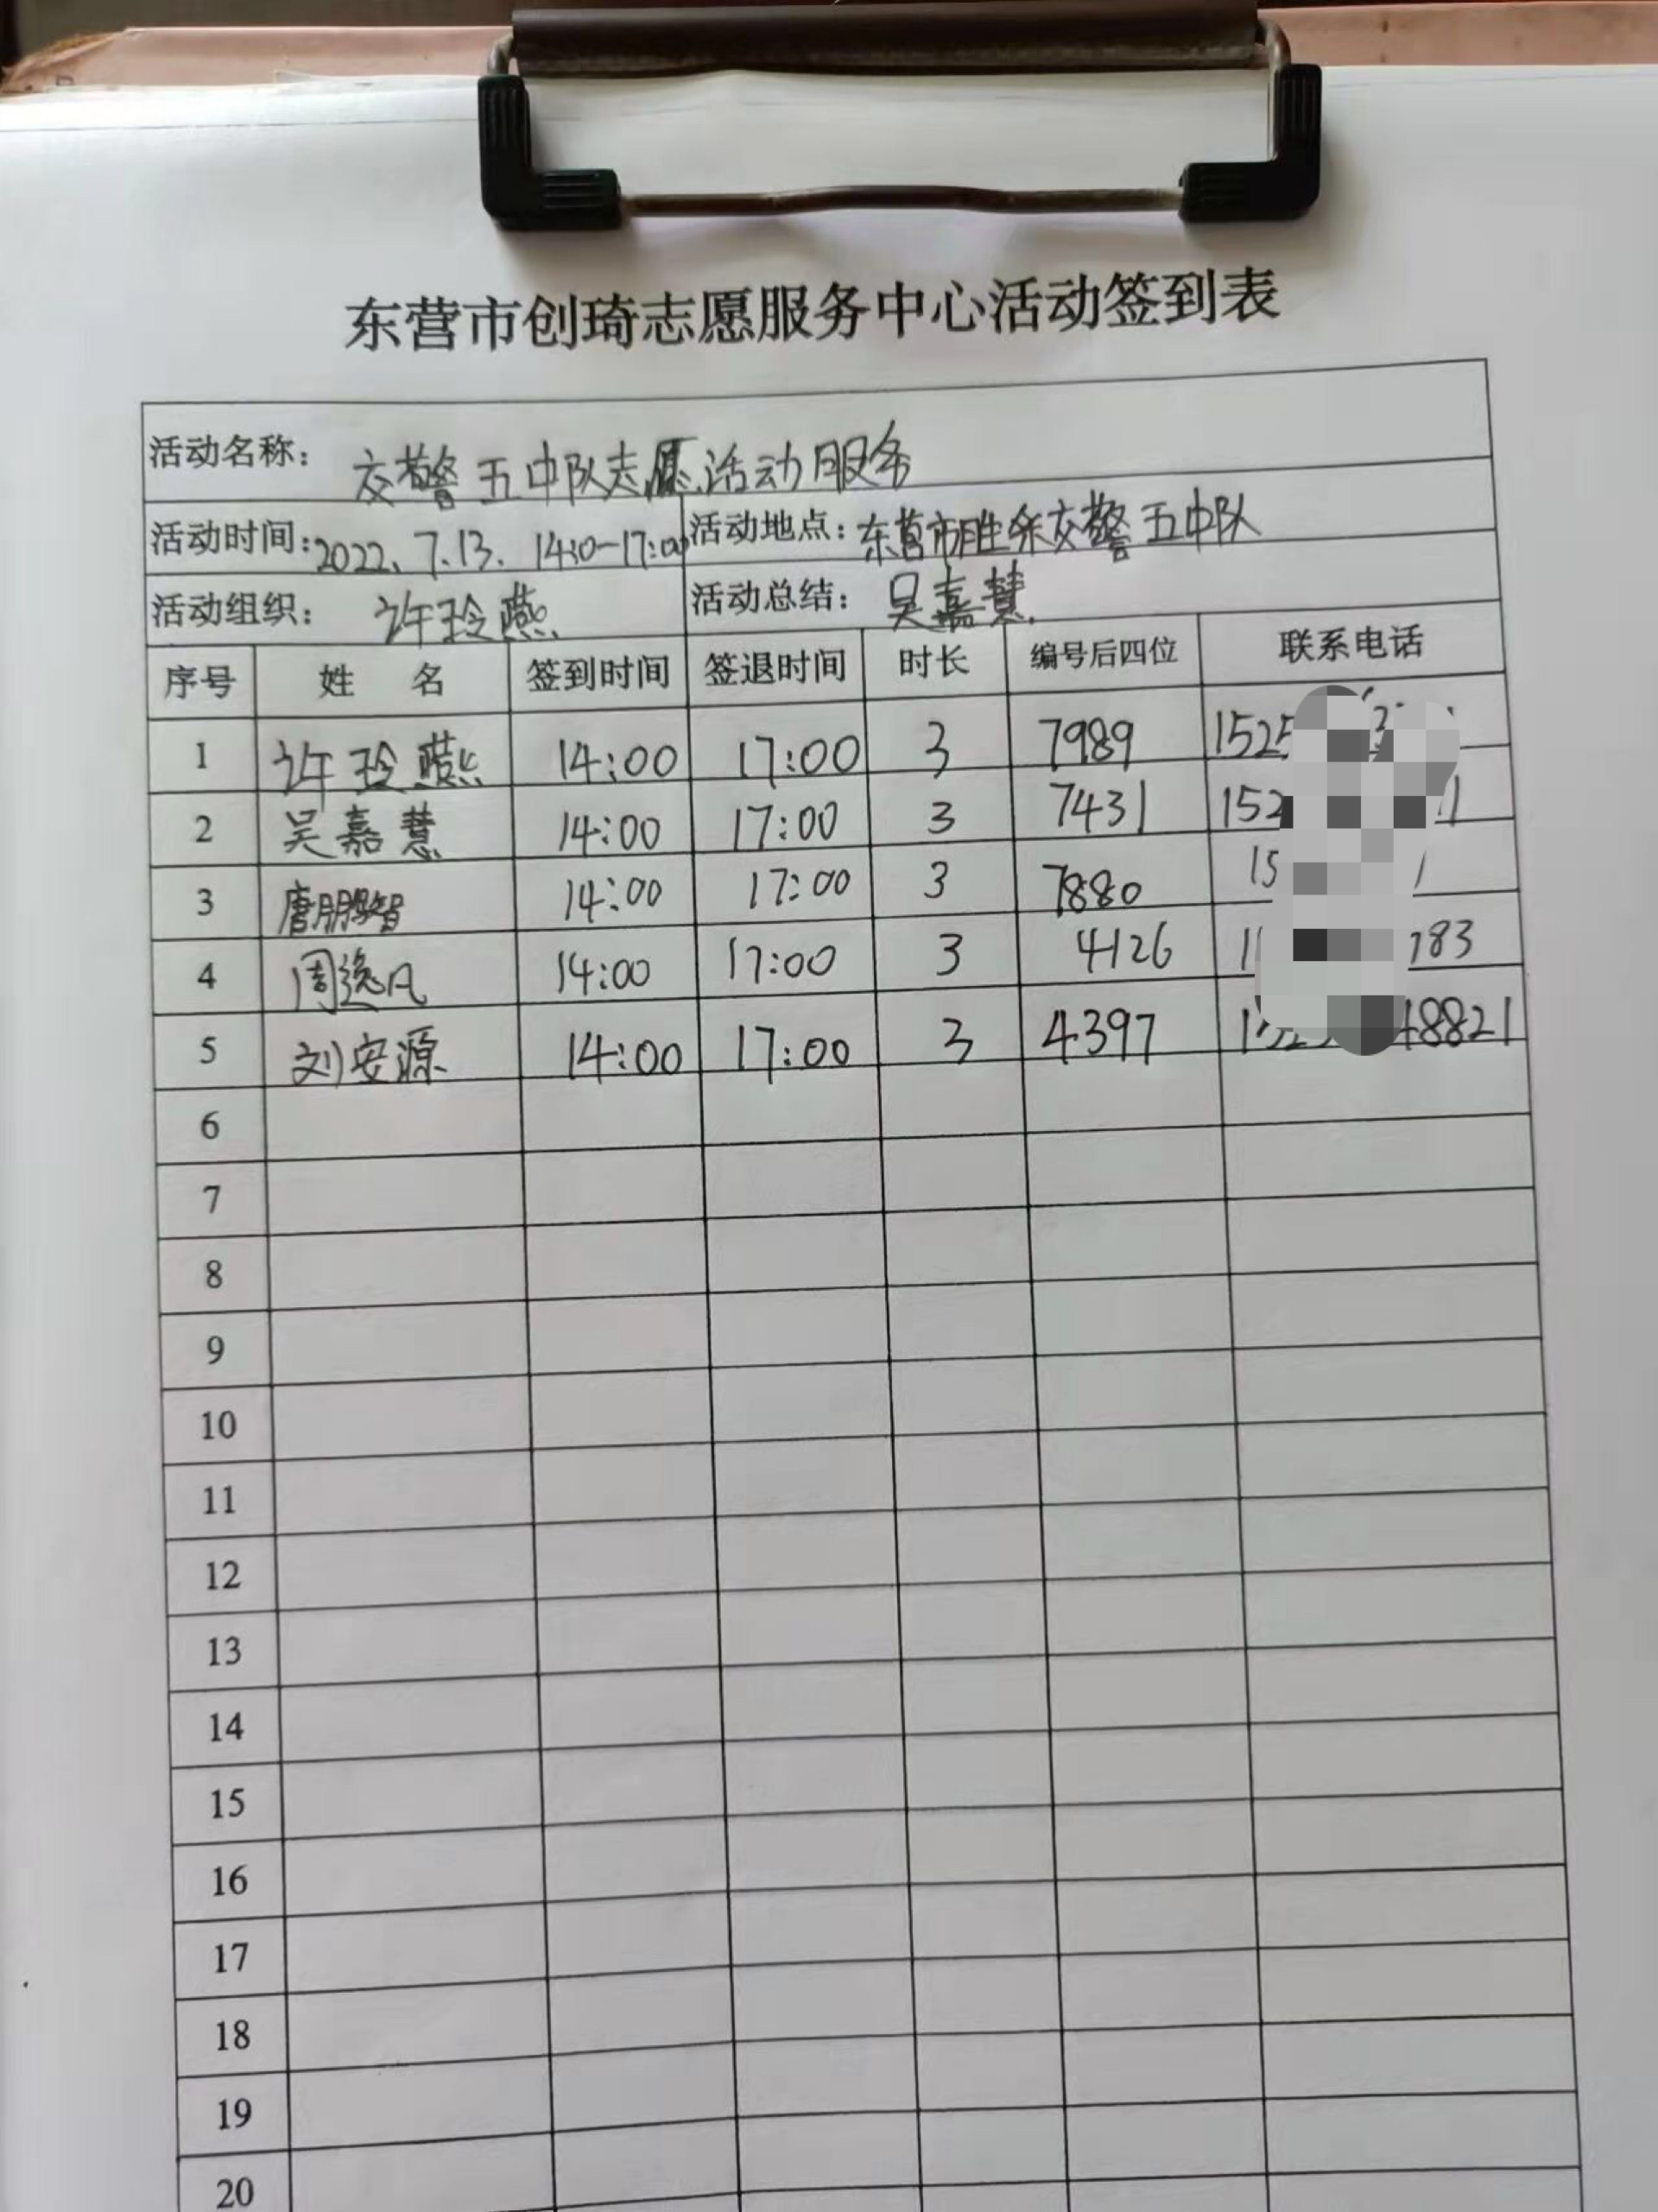 东营市创琦志愿服务中心活动签到表
活动名称： 交警五中队志愿活动服务
活动时间：2022、7.13. 14:0-17:00 活动地点：东营市胜采交警五中队
活动组织： 许玲燕 活动总结： 吴嘉慧
序号 姓 名 签到时间 签退时间 时长 编号后四位 联系电话
1 许玲燕 14:00 17:00 3 7989 1525
2 吴嘉慧 14:00 17:00 3 7431 152 1
3 唐鹏智 14:00 17:00 3 7880 15 1
4 周逸凡 14:00 17:00 3 4126 1 783
5 刘安源 14:00 17:00 3 4397 48821
6
7
8
9
10
11
12
13
14
15
16
17
18
19
20